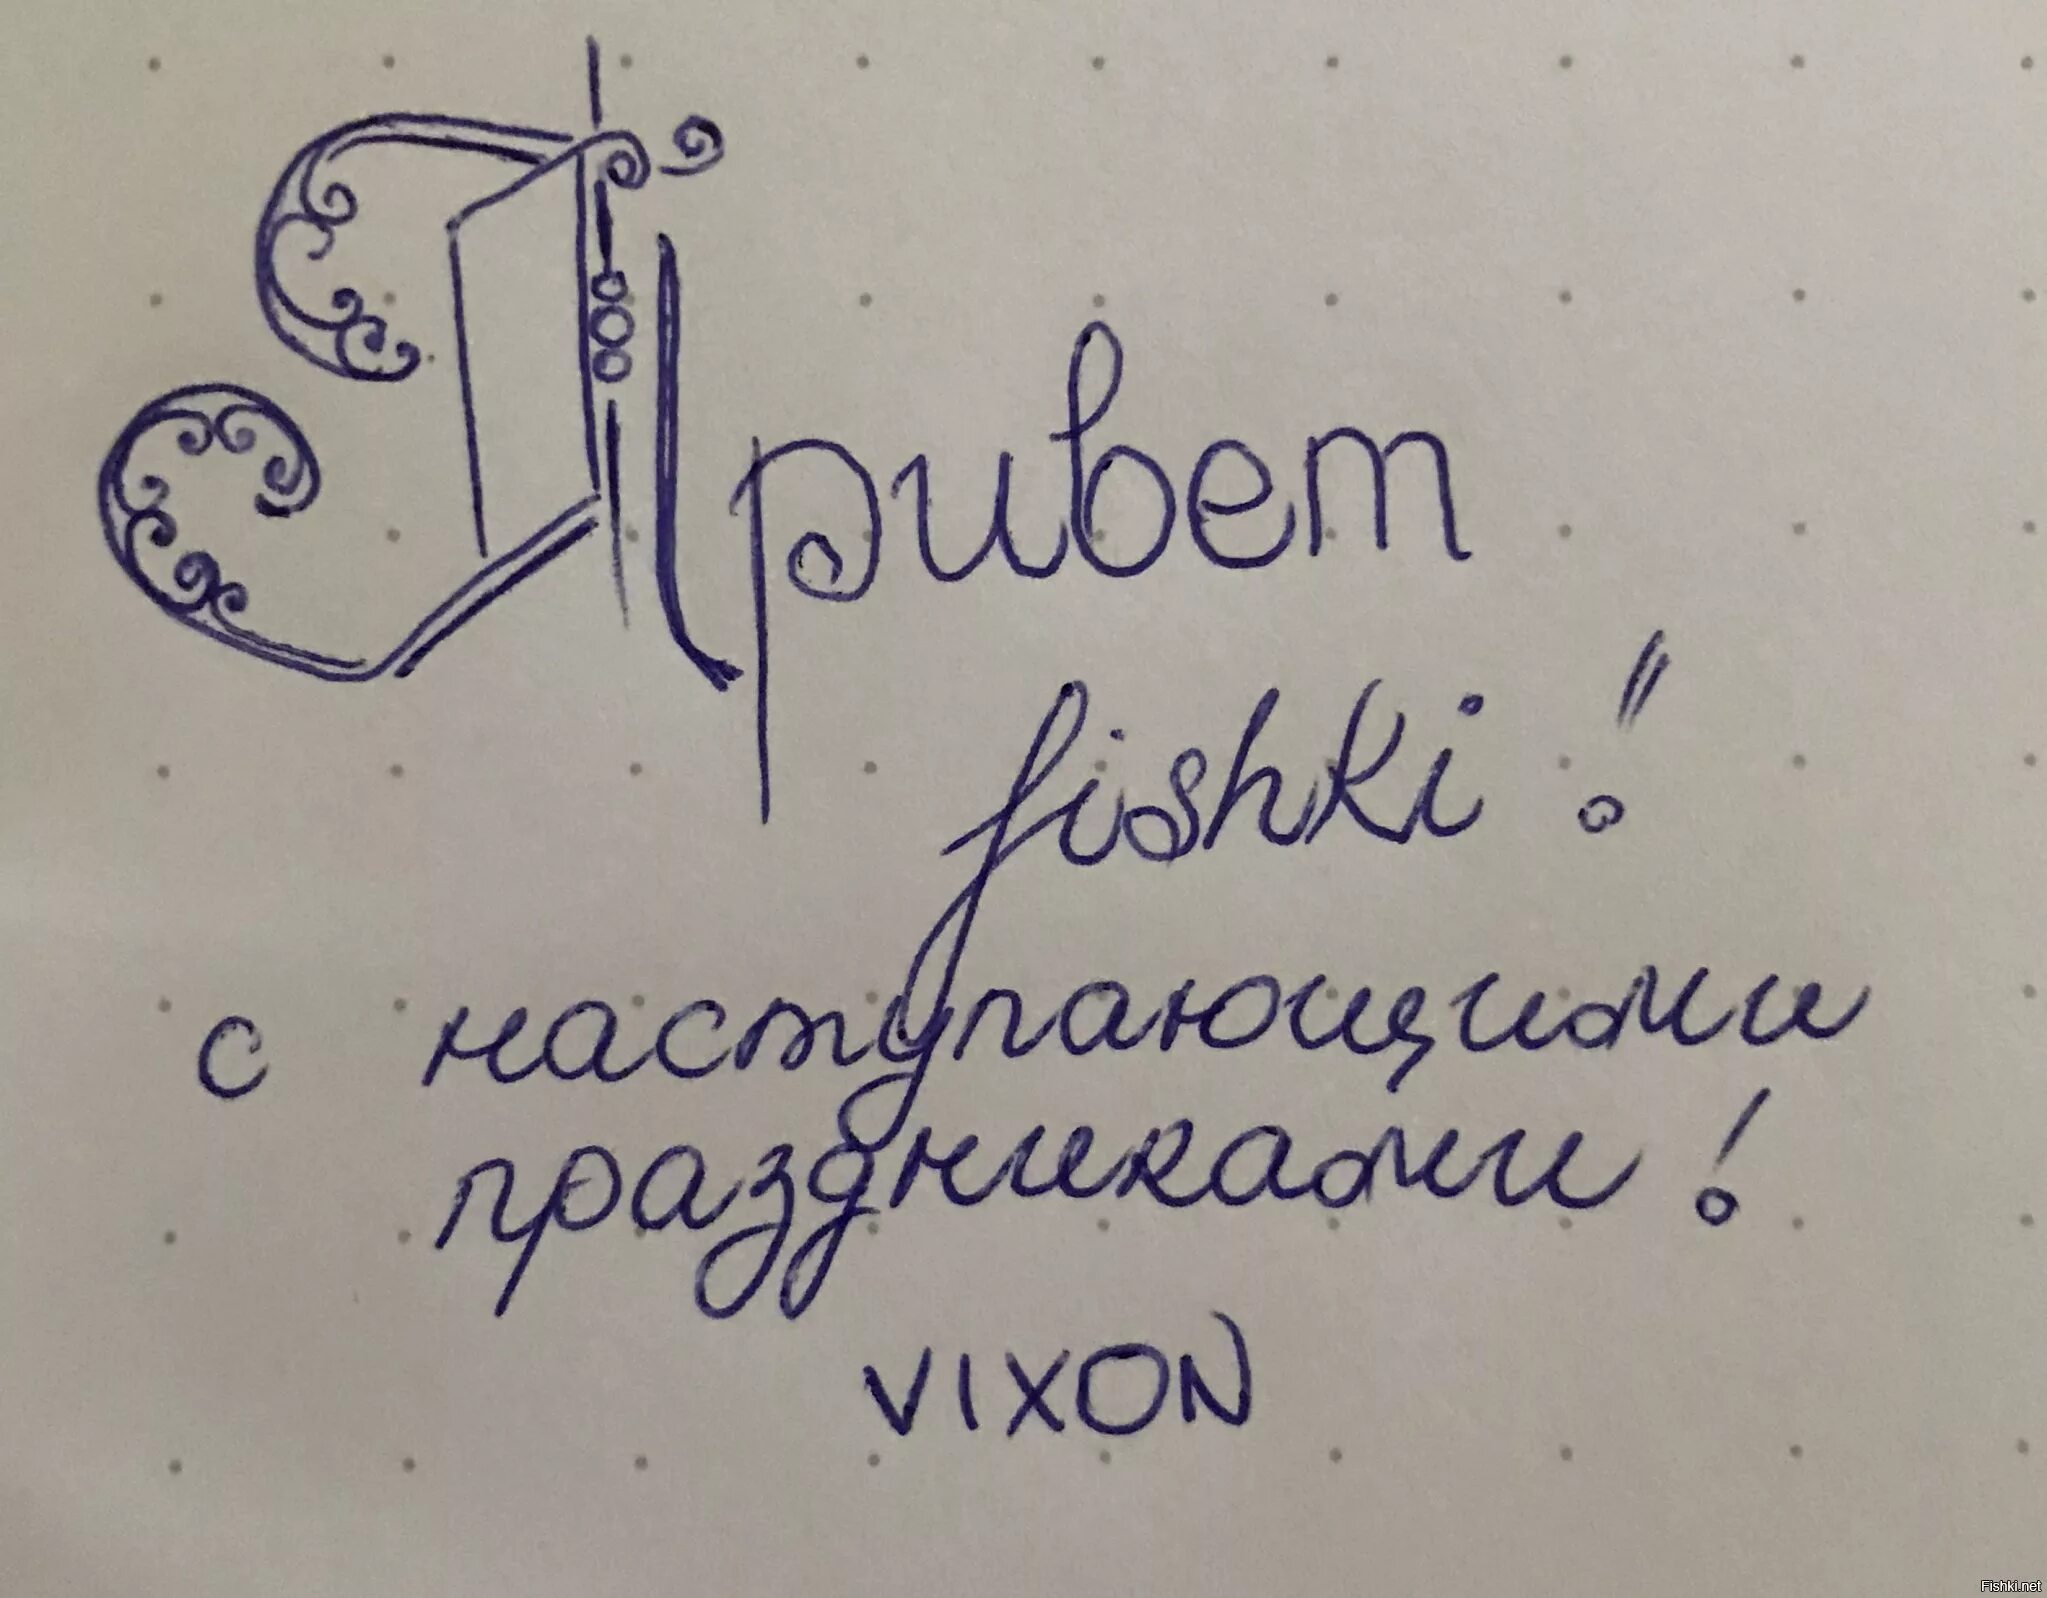 Привет
fishki!
с наступающими
праздниками!
VIXON
Fishki.net